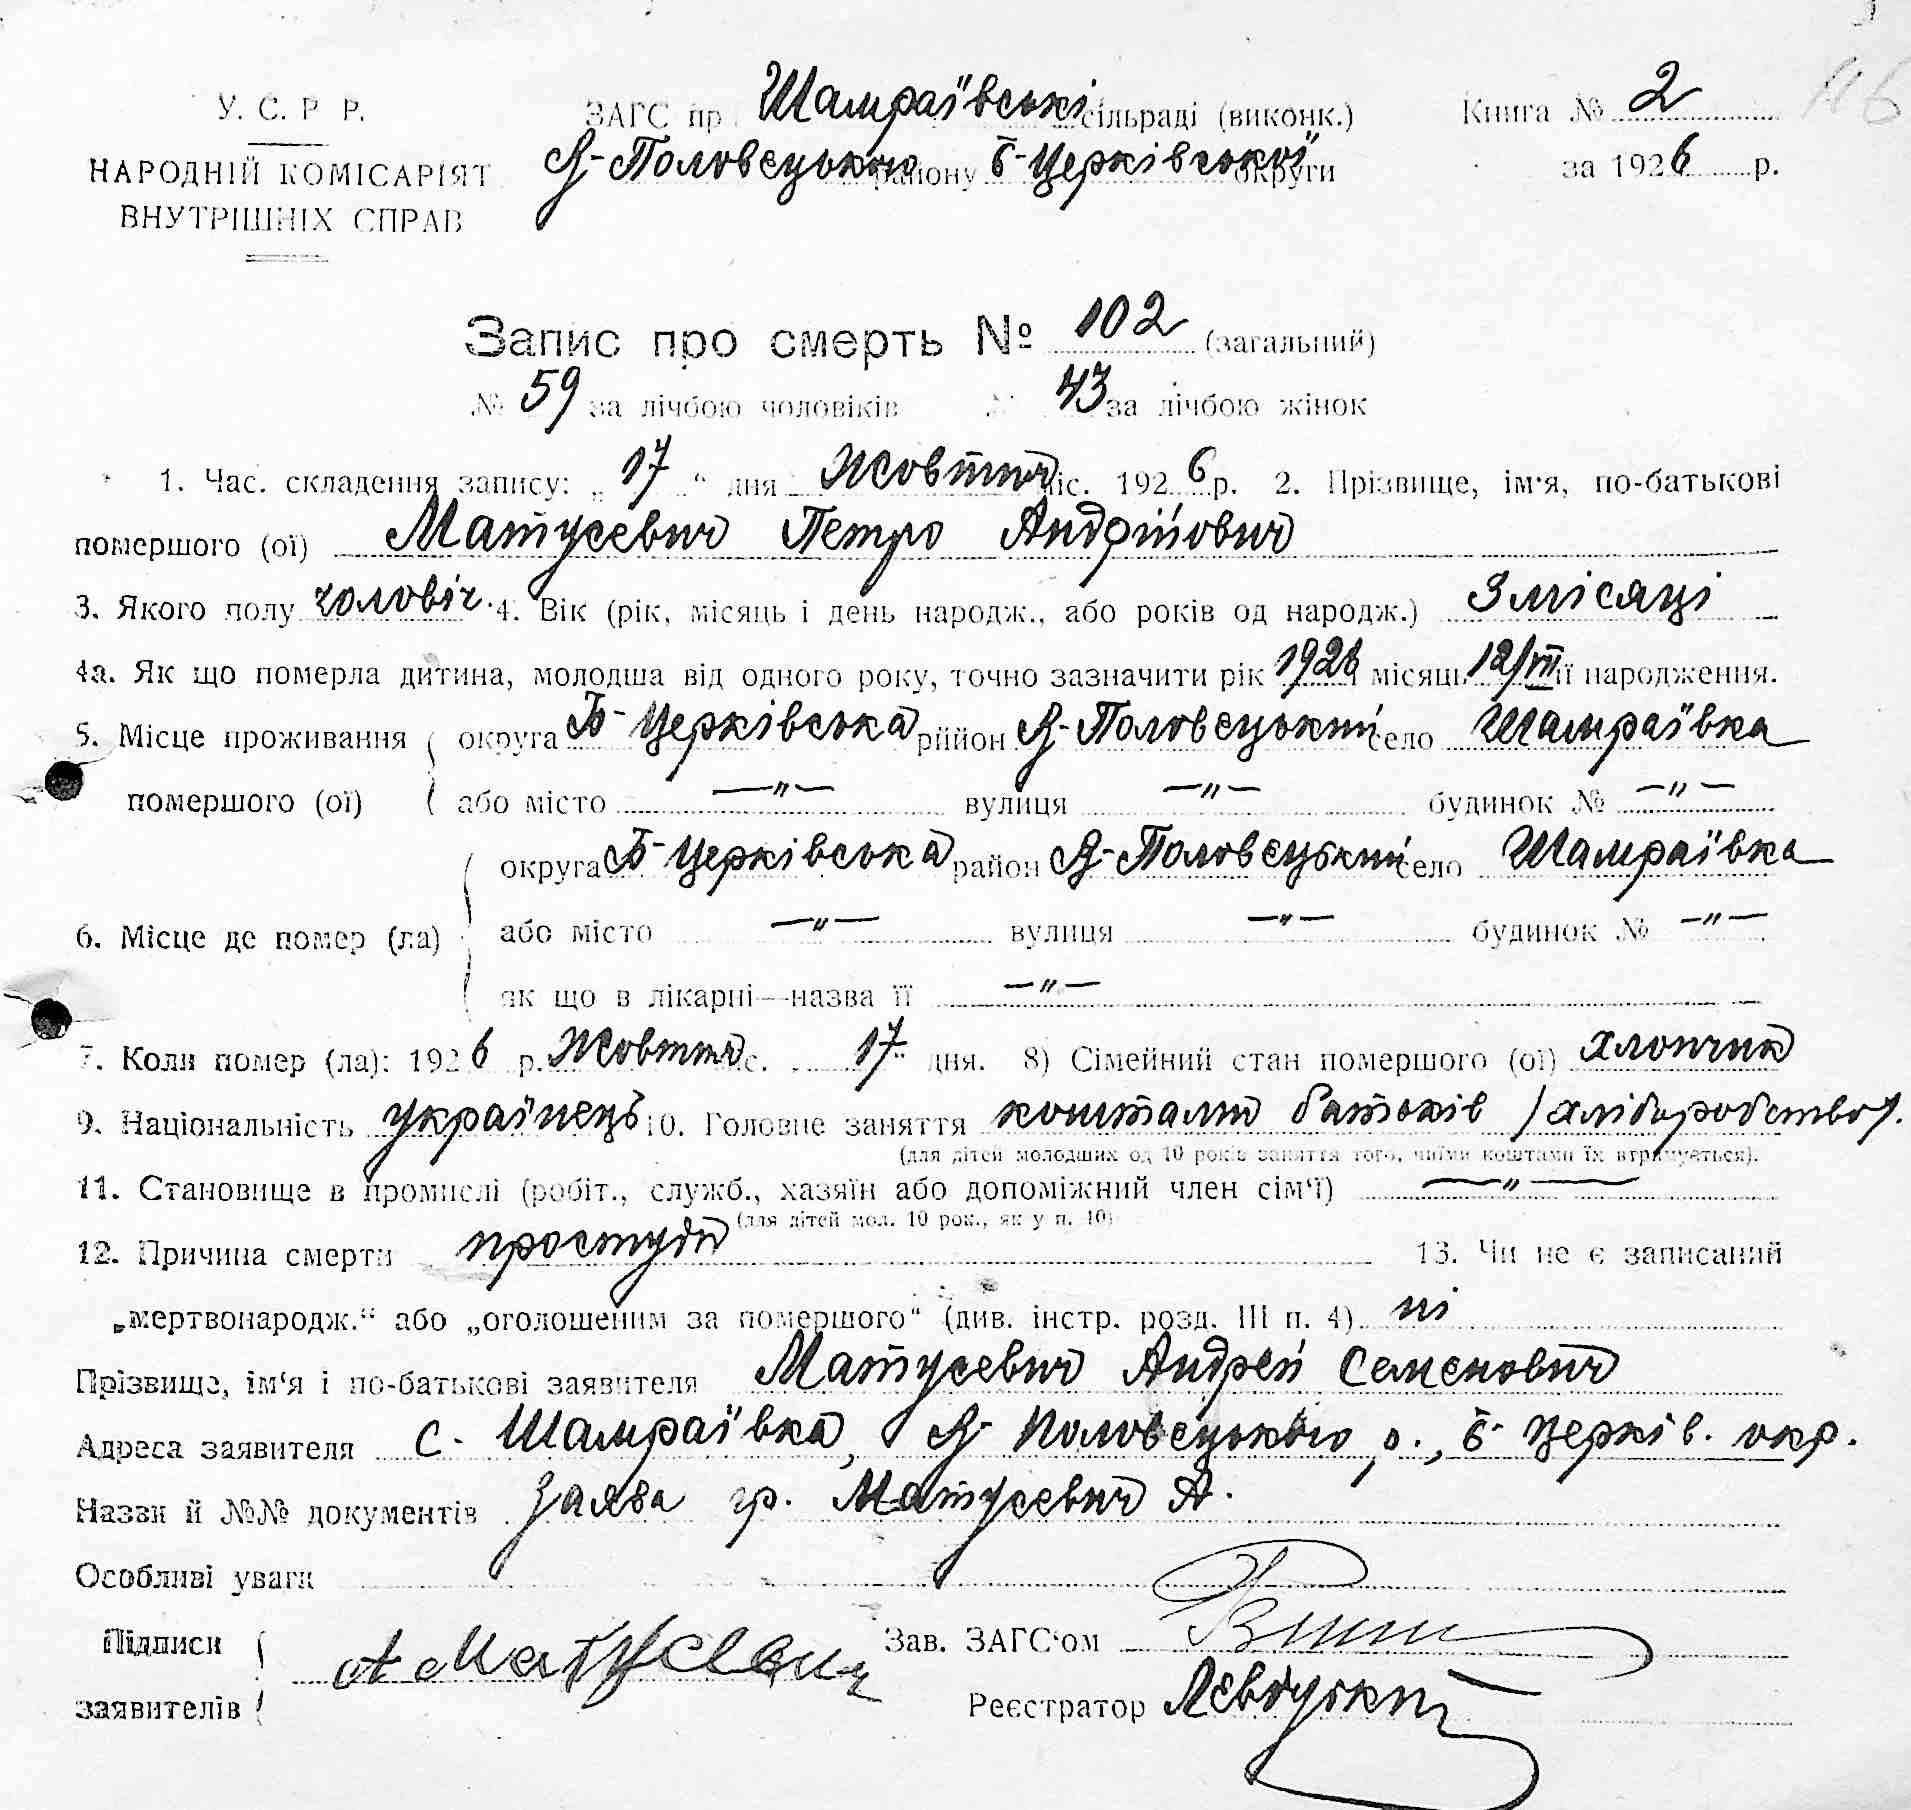 116
У. С. Р Р.
НАРОДНІЙ КОМІСАРІЯТ
ВНУТРІШНІХ СПРАВ
ЗАГС пр Шамраївські сільраді (виконк.)
Я-Половецького району Б-Церківської округи
Книга № 2
за 1926 р.
Запис про смерть № 102 (загальний)
№ 59 за лічбою чоловіків № 43 за лічбою жінок
1. Час. складення запису: „17“ дня Жовтня міс. 1926 р. 2. Прізвище, ім‘я, по-батькові
помершого (ої) Матусевич Петро Андрійович
3. Якого полу чоловіч. 4. Вік (рік, місяць і день народж., або років од народж.) 3 місяці
4а. Як що померла дитина, молодша від одного року, точно зазначити рік 1926 місяць 12/VII її народження.
5. Місце проживання округа Б-Церківська рийон Я-Половецький село Шамраївка
помершого (ої) або місто —„— вулиця —„— будинок № —„—
округа Б-Церківська район Я-Половецький село Шамраївка
6. Місце де помер (ла) або місто —„— вулиця —„— будинок № —„—
як що в лікарні—назва її —„—
7. Коли помер (ла): 1926 р. Жовтня с. 17 дня. 8) Сімейний стан помершого (ої) хлопчик
9. Національність українець 10. Головне заняття коштами батьків /хліборобство/.
(для дітей молодших од 10 років заняття того, чиїми коштами їх втримується).
11. Становище в промислі (робіт., служб., хазяїн або допоміжний член сім‘ї) —„—
(для дітей мол. 10 рок., як у п. 10)
12. Причина смерти простуда 13. Чи не є записаний
„мертвонародж.“ або „оголошеним за помершого“ (див. інстр. розд. III п. 4) ні
Прізвище, ім‘я і по-батькові заявителя Матусевич Андрей Семенович
Адреса заявителя с. Шамраївка, Я-Половецького р., Б-Церків. окр.
Назви й №№ документів Заява гр. Матусевич А.
Особливі уваги
Підписи А Матусевич Зав. ЗАГС‘ом
заявителів Реєстратор Левіцкий